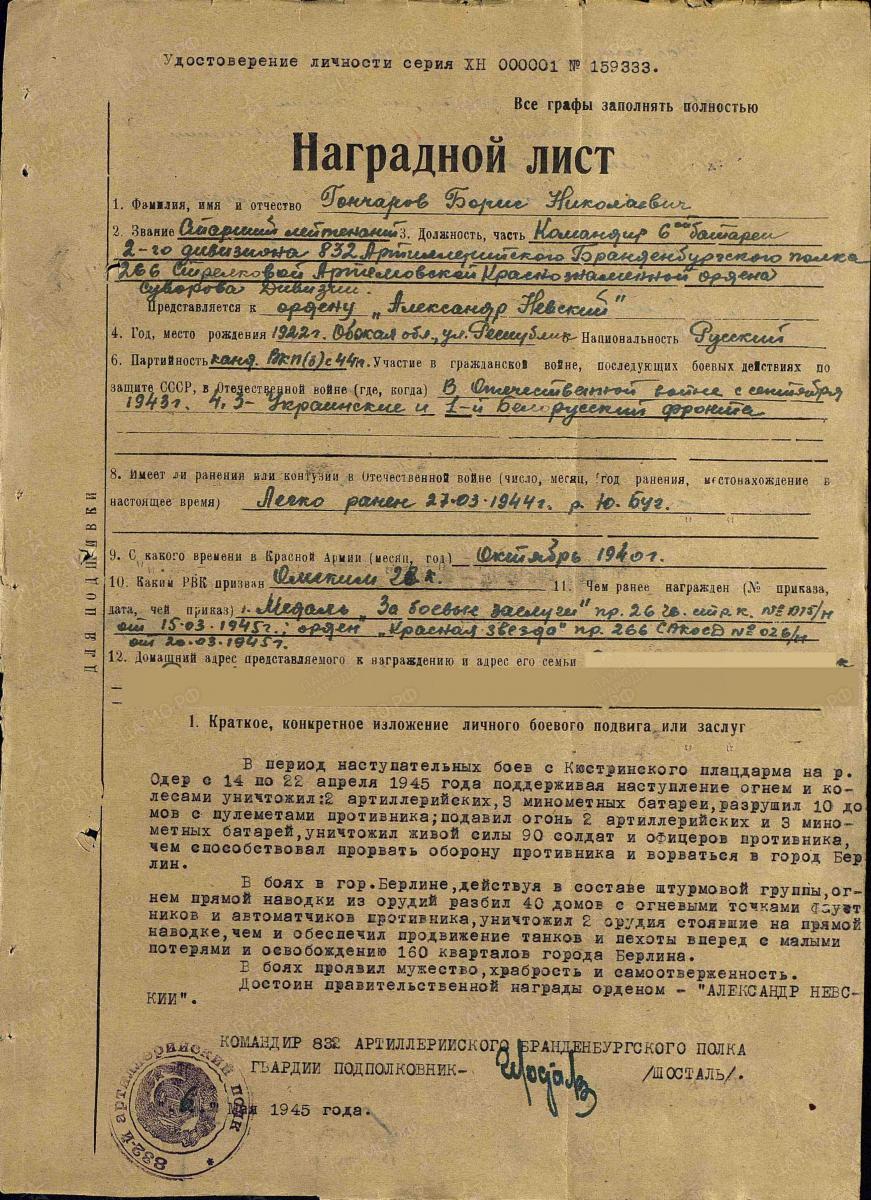 Удостоверение личности серия ХН 000001 № 159333.
Все графы заполнять полностью
Наградной лист
1. Фамилия, имя и отчество Гончаров Борис Николаевич
2. Звание Старший лейтенант 3. Должность, часть Командир 6ой батареи
2-го дивизиона 832 Артиллерийского Бранденбургского полка
266 Стрелковой Артемовской Краснознаменной ордена
Суворова Дивизии.
Представляется к ордену „Александр Невский"
4. Год, место рождения 1922г. обл., ул. Республик Национальность Русский
6. Партийность канд. ВКП(б) с 44г. Участие в гражданской войне, последующих боевых действиях по
защите СССР, в Отечественной войне (где, когда) В Отечественной войне с сентября
1943г. 4, 3- Украинские и 1-й Белорусский фронта
8. Имеет ли ранения или контузии в Отечественной войне (число, месяц, год ранения, местонахождение в
настоящее время) Легко ранен 27.03.1944г. р. Ю. Буг.
9. С какого времени в Красной Армии (месяц, год) Октябрь 1940г.
10. Каким РВК призван Омским 11. Чем ранее награжден (№ приказа,
дата, чей приказ) 1. Медаль „За боевые заслуги" пр. 26 гв. стр. к. № 015/н
от 15.03.1945г.; орден „Красная звезда" пр. 266 № 026/н
от 20.03.1945г.
12. Домашний адрес представляемого к награждению и адрес его семьи
ДЛЯ ПОДШИВКИ
1. Краткое, конкретное изложение личного боевого подвига или заслуг
В период наступательных боев с Кюстринского плацдарма на р.
Одер с 14 по 22 апреля 1945 года поддерживая наступление огнем и ко-
лесами уничтожил:2 артиллерийских,3 минометных батареи,разрушил 10 до
мов с пулеметами противника;подавил огонь 2 артиллерийских и 3 мино-
метных батарей,уничтожил живой силы 90 солдат и офицеров противника,
чем способствовал прорвать оборону противника и ворваться в город Бер
лин.
В боях в гор.Берлине,действуя в составе штурмовой группы,ог-
нем прямой наводки из орудий разбил 40 домов с огневыми точками фауст
ников и автоматчиков противника,уничтожил 2 орудия стоявшие на прямой
наводке,чем и обеспечил продвижение танков и пехоты вперед с малыми
потерями и освобождению 160 кварталов города Берлина.
В боях проявил мужество,храбрость и самоотверженность.
Достоин правительственной награды орденом - "АЛЕКСАНДР НЕВС-
КИИ".
КОМАНДИР 832 АРТИЛЛЕРИИСКОГО БРАНДЕНБУРГСКОГО ПОЛКА
ГВАРДИИ ПОДПОЛКОВНИК- /ШОСТАЛЬ/.
6 Мая 1945 года.
832-й артиллерийский полк